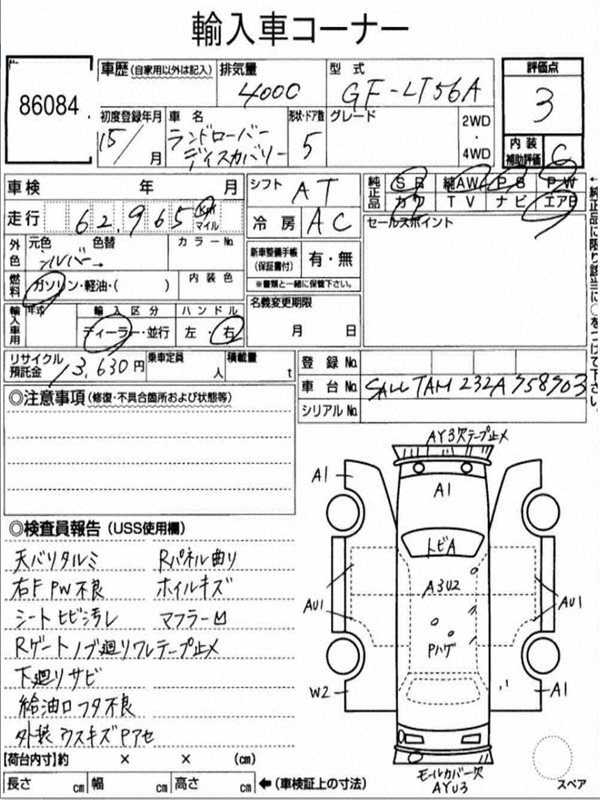 輸入車コーナー
86084
車歴(自家用以外は記入)
排気量 4000
型式 GF-LT56A
評価点 3
初度登録年月 15/ 月
車名 ランドローバー ディスカバリー
形状・ドア数 5
グレード
2WD・4WD
内装補助評価 C
車検 年 月
シフト AT
純正品 SR 純AW PS PW
カワ TV ナビ エアB
走行 62,965 Km マイル
冷房 AC
セールスポイント
外色 元色 色替 カラーNo.
シルバー→
新車整備手帳(保証書付) 有・無
※書類と一緒に保管下さい。
燃料 ガソリン・軽油・( ) 内装色
名義変更期限
月 日
輸入車用 年式 輸入区分 ハンドル
ディーラー・並行 左・右
←純正品に限り該当に○をつけて下さい。
リサイクル預託金 13,630円 乗車定員 人 積載量 t
登録No.
車台No. SALLTAM232A758903
シリアルNo.
◎注意事項(修復・不具合箇所および状態等)
AY3欠テープ止メ
A1
A1
トビA
A3U2
AU1
AU1
Pハゲ
W2
A1
モールカバー欠
AYU3
スペア
◎検査員報告(USS使用欄)
天バリタルミ Rパネル曲り
右F PW不良 ホイルキズ
シートヒビ汚レ マフラー凹
Rゲートノブ廻りワレテープ止メ
下廻りサビ
給油口フタ不良
外装ウスキズPアセ
【荷台内寸】約 × × (cm)
長さ cm 幅 cm 高さ cm ←(車検証上の寸法)